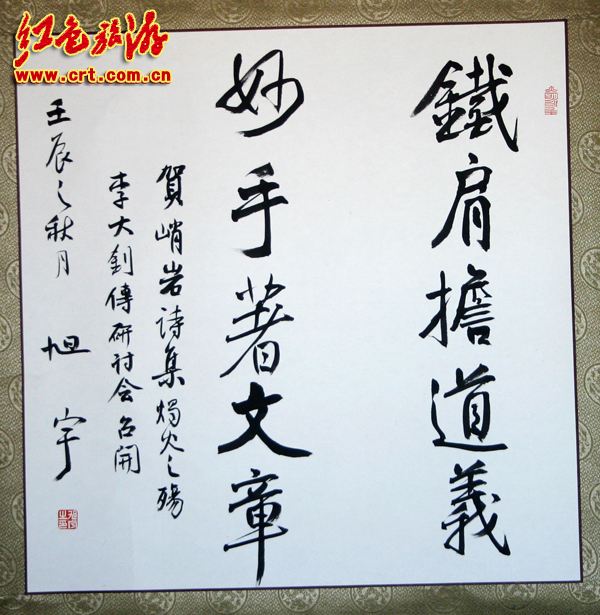 红色旅游
www.crt.com.cn
鐵肩擔道義
妙手著文章
賀峭岩诗集烛火之殤
李大釗傳研讨会召開
壬辰之秋月 旭宇